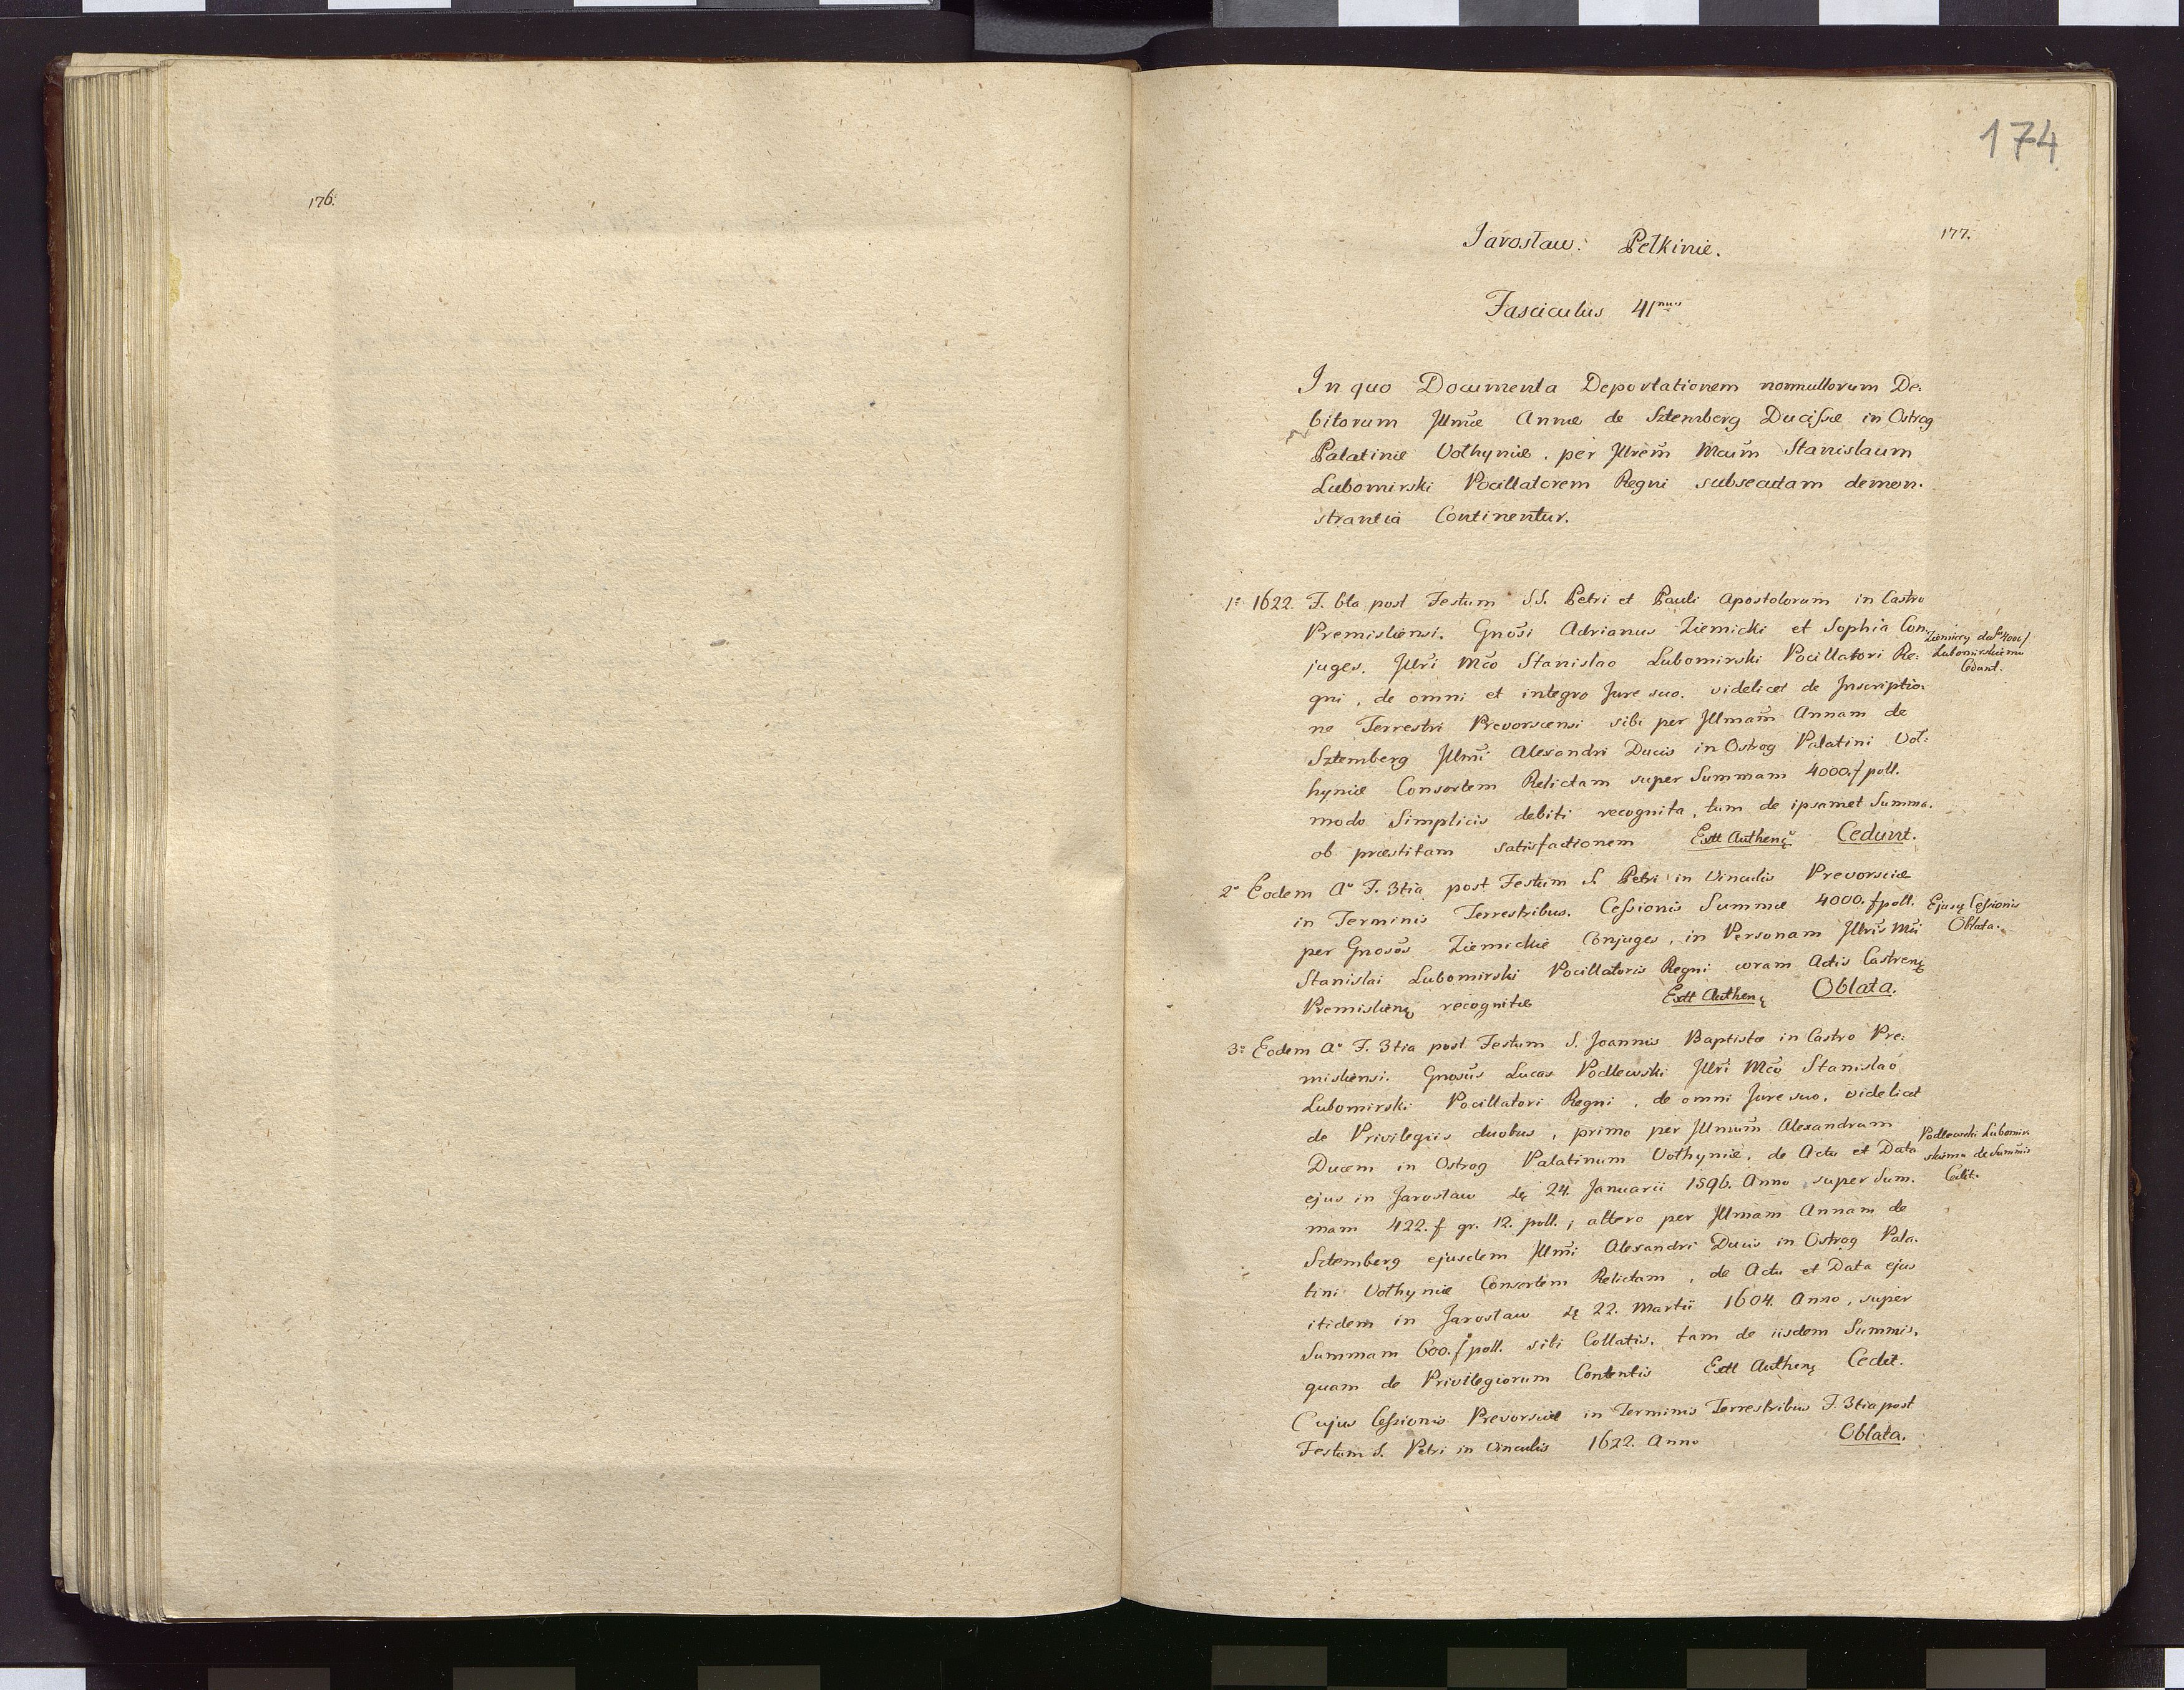 176.
174
177.
Jarosław: Pełkinie.
Fasciculus 41mus
In quo Documenta Deportationem nonnullorum De:
bitorum Jllmæ Annæ de Sztemberg Ducißæ in Ostrog
Palatinæ Vołhyniæ, per Jllrem Mcum Stanislaum
Lubomirski Pocillatorem Regni subsecutam demon.
strantia Continentur.
1º 1622. F. 6ta post Festum S.S. Petri et Pauli Apostolorum in Castro
Premisliensi. Gnosi Adrianus Ziemicki et Sophia Con.
juges, Jllri Mco Stanislao Lubomirski Pocillatori Re:
gni, de omni et integro Jure suo. videlicet de Jnscriptio.
ne Terrestri Prevorscensi sibi per Jllmam Annam de
Sztemberg Jllmi Alexandri Ducis in Ostrog Palatini Voł:
hyniæ Consortem Relictam super Summam 4000. f poll.
modo Simplicis debiti recognita, tum de ipsamet Summa,
ob præstitam satisfactionem Extt Authenę Cedunt.
Ziemiccy de Sª 4000 f
Lubomirskiemu
Cedunt.
2º Eodem Aº F. 3tia post Festum S. Petri in Vinculis Prevorsciæ
in Terminis Terrestribus. Ceßionis Summæ 4000. f poll.
per Gnosos Ziemickie Conjuges, in Personam Jllris Mci
Stanislai Lubomirski Pocillatoris Regni coram Actis Castrenę
Premislienę recognitæ Extt Authenę Oblata.
Ejusę Ceßionis
Oblata.
3º Eodem Aº F. 3tia post Festum S. Joannis Baptistæ in Castro Pre:
misliensi. Gnosus Lucas Podlewski Jllri Mco Stanislao
Lubomirski Pocillatori Regni, de omni Jure suo, videlicet
de Privilegiis duobus, primo per Jllmum Alexandrum
Ducem in Ostrog Palatinum Vołhyniæ, de Actu et Data
ejus in Jarosław dę 24. Januarii 1596. Anno super Sum.
mam 422. f gr. 12. poll.; altero per Jllmam Annam de
Sztemberg ejusdem Jllmi Alexandri Ducis in Ostrog Pala.
tini Vołhyniæ Consortem Relictam, de Actu et Data ejus
itidem in Jarosław dę 22. Martii 1604. Anno, super
Summam 600. f poll. sibi Collatis, tam de iisdem Summis,
quam de Privilegiorum Contentis Extt Authenę Cedit.
Podlewski Lubomir.
skiemu de Summis
Cedit.
Cujus Ceßionis Prevorsciæ in Terminis Terrestribus F. 3tia post
Festum S. Petri in Vinculis 1622. Anno Oblata.